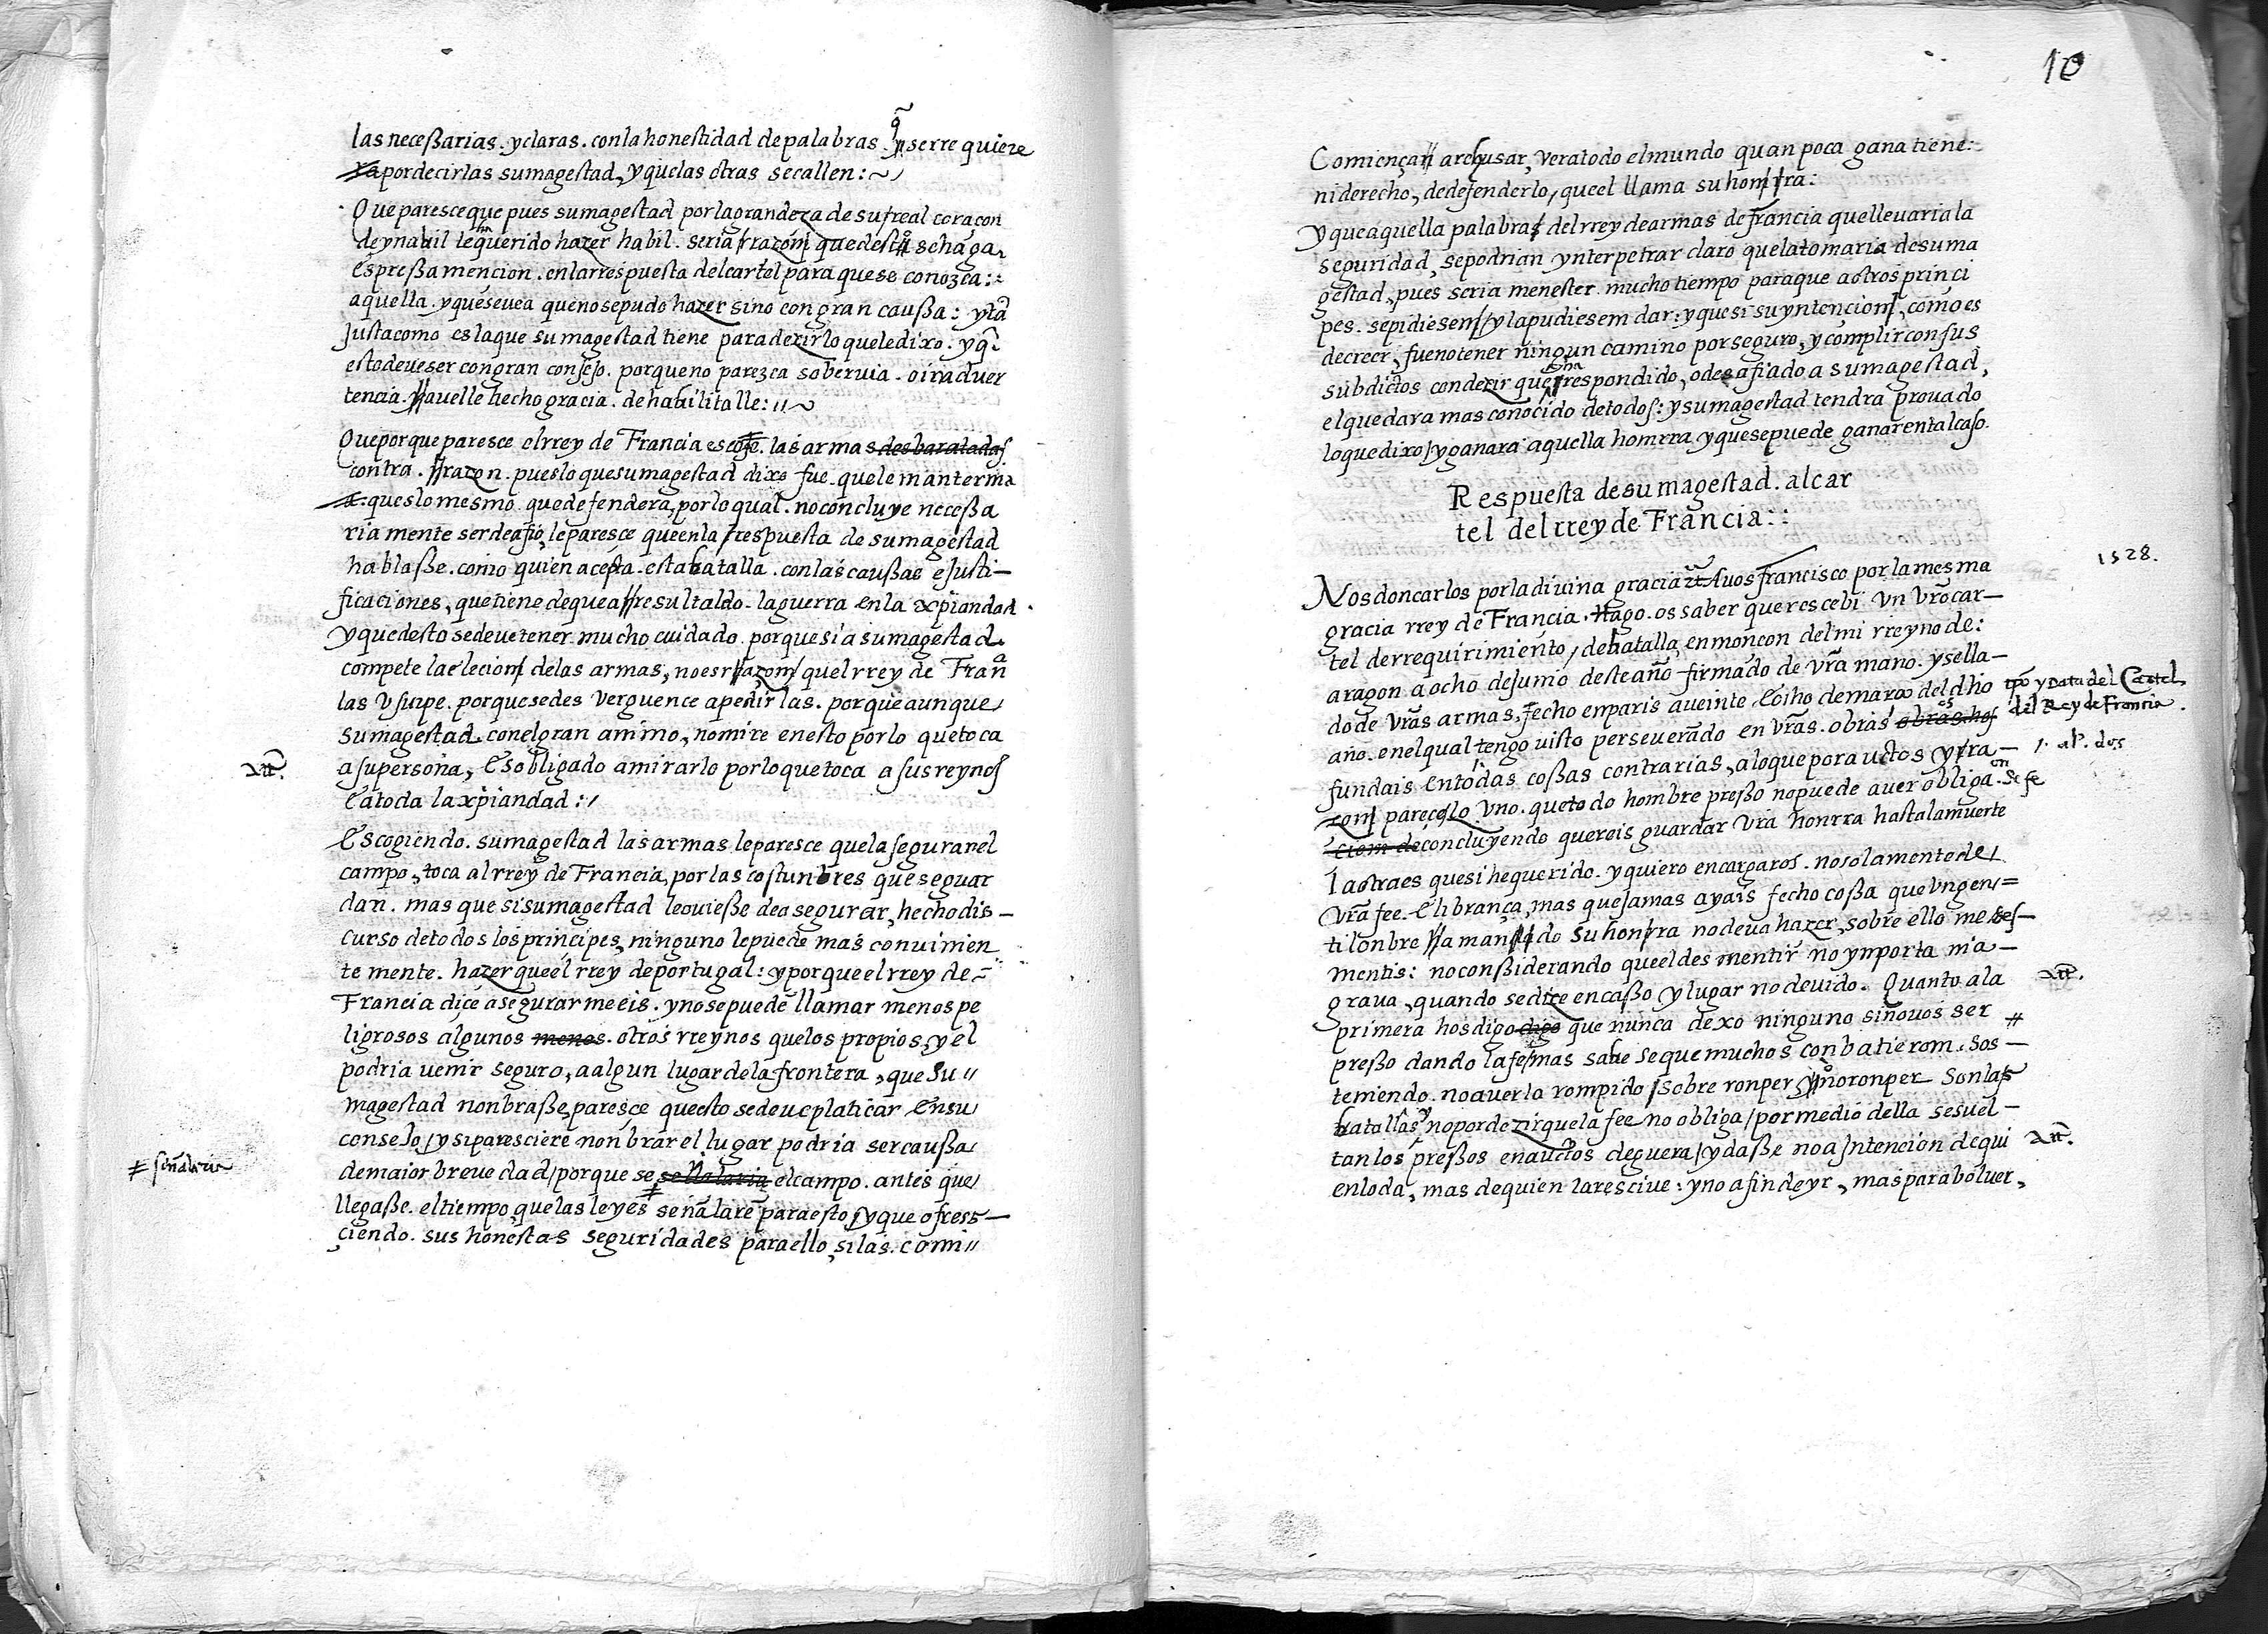 las neceßarias. y claras. con la honestidad de palabras. q̃ se rrequiere
por decirlas su magestad, y que las otras se callen:~
Que paresce que pues su magestad por la grandeza de su rreal coracon
de ynabil le a querido hazer habil. seria rrazom que desto se haga
espreßa mencion. en la rrespuesta del cartel para que se conozca:
aquella. y que se vea que no se pudo hazer sino con gran caußa: y tã
Justa como es la que su magestad tiene para dezir lo que le dixo. y q̃
esto deve ser con gran consejo. porque no parezca sobervia. o inadver
tencia. avelle hecho gracia. de habilitalle:
Que porque paresce el rrey de Francia escoje. las armas desbaratadas
contra. rrazon. pues lo que su magestad dixo fue. que le manternia
ques lo mesmo que defendera, por lo qual. no concluye neceßa
ria mente ser deafio, le paresce que en la rrespuesta de su magestad
hablaße. como quien acepta. esta batalla. con las caußas e Justi—
ficaciones, que tiene de que a rresultado. la guerra en la xp̃iandad.
y que desto se deve tener. mucho cuidado. porque si a su magestad
compete la elecion de las armas, no es rrazom quel rrey de Franª
las Vsurpe. porque se desverguence a pedirlas. porque aunque
su magestad con el gran animo, no mire en esto por lo que toca
a su persona, Es obligado a mirarlo por lo que toca a sus reynos
E a toda la xp̃iandad:
Escogiendo. su magestad las armas le paresce que la segurar el
campo, toca al rrey de Francia, por las costunbres que se guar
dan. mas que si su magestad le ovieße de a segurar, hecho dis—
curso de todos los principes, ninguno le puede mas convinien
te mente. hazer que el rrey de portugal: y porque el rrey de
Francia dice asegurarmeeis. y no se puede llamar menos pe
ligrosos algunos menos. otros rreynos que los propios, y el
podria venir seguro, a algun lugar de la frontera, que su
magestad nonbraße, paresce que esto se deve platicar En su
consejo, y si paresciere nonbrar el lugar podria ser caußa
# señalaria
de maior brevedad, porque se señalaria el campo. antes que
llegaße. el tiempo, que las leyes señalarẽ para esto, y que ofres—
çiendo. sus honestas seguridades para ello, si las. comi
10
Començare a rehusar, vera todo el mundo quan poca gana tiene:
ni derecho, de defenderlo, que el llama su honrra:
y que aquella palabra del rrey de armas de francia que llevaria la
seguridad, se podrian ynterpetrar claro que la tomaria de su ma
gestad, pues seria menester. mucho tiempo para que a otros princi
pes. se pidiesen, y la pudiesem dar: y que si su yntencion, como es
de creer, fue no tener ningun camino por seguro, y complir con sus
subdictos con dezir que rrespondido, o desafiado a su magestad,
el quedara mas conocido de todos: y su magestad tendra provado
lo que dixo, y ganara aquella homrra y que se puede ganar en tal caso.
Respuesta de su magestad. al car
tel del rrey de Francia::
1528.
Nos don carlos por la divina gracia a vos francisco por la mesma
gracia rrey de Francia. Hago. os saber que rescebi vn vr̃o car—
tel de rrequirimiento, de batalla, en moncon del mi rreyno de:
aragon a ocho de Junio deste año firmado de vr̃a mano. y sella—
do de vr̃as armas, fecho en paris a veinte E ocho de março del dho
tpõ y Data del Cartel
del Rey de Francia.
año. en el qual tengo visto perseverãdo en vr̃as. obras obras. hos
fundais En todas coßas contrarias, a lo que por auctos y rra—
zom parece, lo Vno. que todo hombre preßo no puede aver obliga.on de fe
concluyendo quereis guardar vr̃a honrra hasta la muerte
La otra es que si he querido. y quiero encargaros. no solamente de
vr̃a fee. E librança, mas que Jamas ayais fecho coßa que vn gen=
til onbre amando su honrra no deva hazer, sobre ello me des—
mentis: no conßiderando que el desmentir no ynporta ni a—
grava, quando se dize en caßo y lugar no devido. Quanto a la
primera hos digo digo que nunca dexo ninguno sino vos ser
preßo dando la fe, mas sabe se que muchos conbatierom. Sos—
teniendo. no averla rompido, sobre ronper y no ronper son las
batallas y no por dezir que la fee no obliga, por medio della se suel—
tan los preßos en auctos de guera, y daße no a Intencion de qui
en lo da, mas de quien la rescive: y no a fin de yr, mas para bolver,